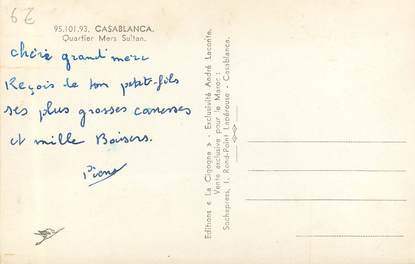 92
95.101.93. CASABLANCA.
Quartier Mers Sultan.
chère grand'mère
Reçois de ton petit-fils
ses plus grosses caresses
et mille Baisers.
Pierre
Editions « La Cigogne » - Exclusivité André Leconte.
Vente exclusive pour le Maroc :
Sochepress, 1, Rond-Point Lapérouse - Casablanca.